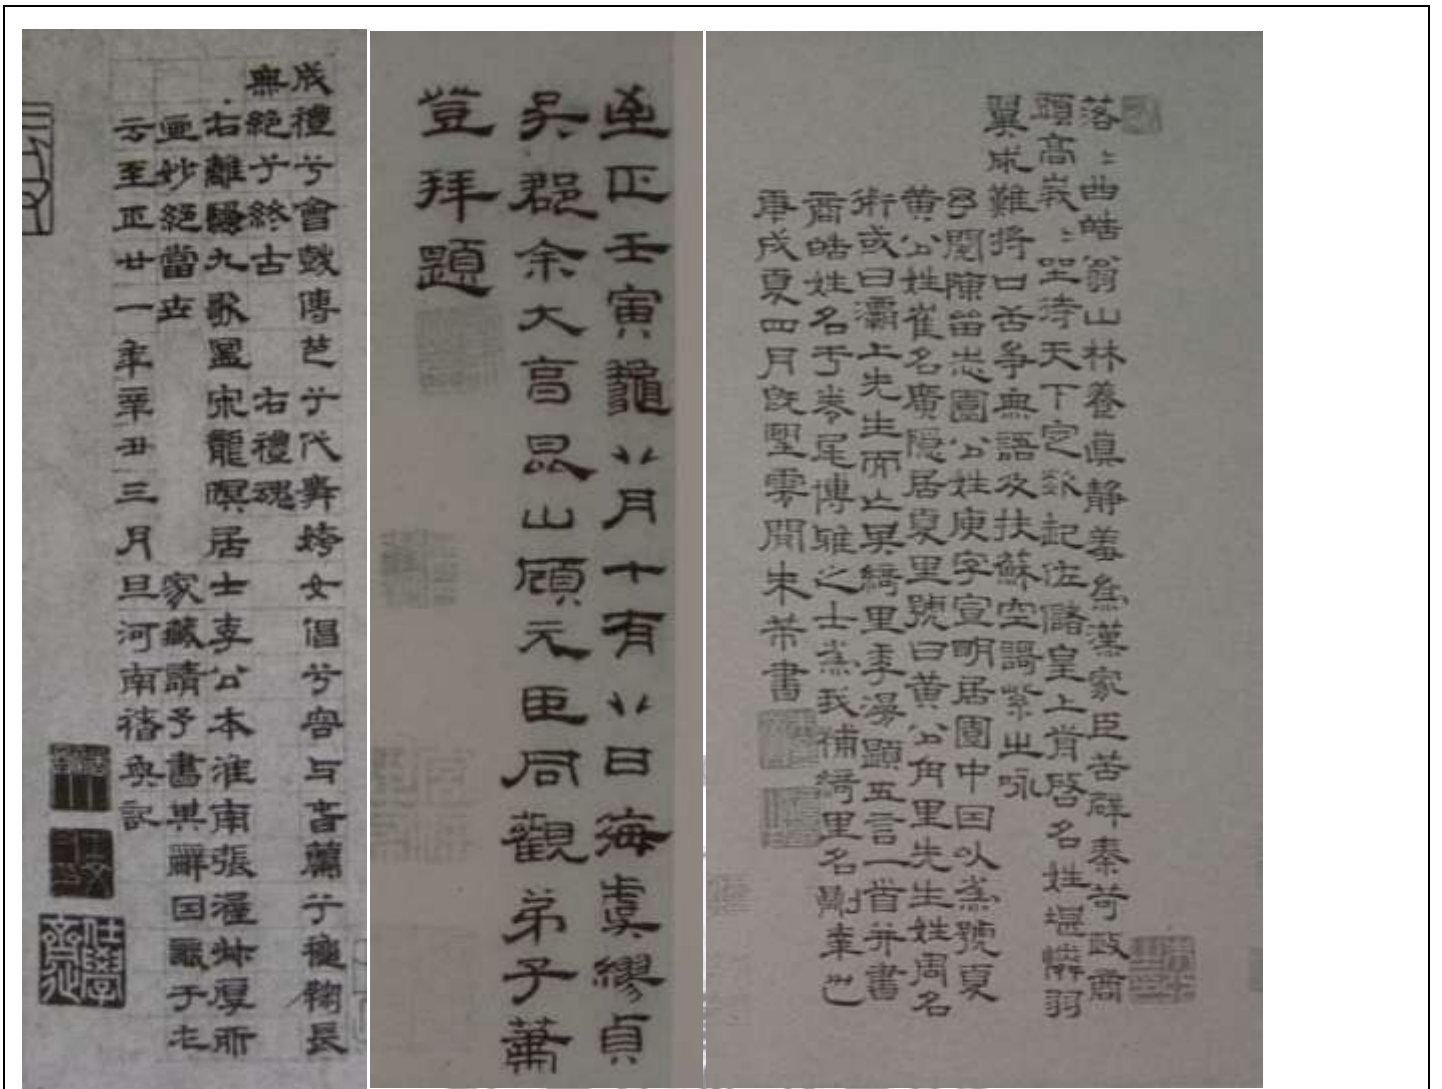 成禮兮會鼓傳芭兮代舞姱女倡兮容与春蘭兮秋鞠長
無絕兮終古 右禮魂
右離騷九歌圖宋龍眠居士李公本淮南張渥叔厚所
画妙絕當世 家藏請予書其辭因識于左
云至正廿一年辛丑三月旦河南褚奐記
至正壬寅龝八月十有八日海虞繆貞
吳郡余大亨昆山顧元臣同觀弟子蕭
登拜題
落〻四皓翁山林養真靜羞為漢家臣苦辟秦苛政商
顏高峩〻坐待天下定欻起佐儲皇上肯啓名姓堪憐羽
翼成難將口舌爭無語及扶蘇空謌紫芝咏
予閱陳留志園公姓庾字宣明居園中因以為號夏
黃公姓崔名廣隱居夏里號曰黃公甪里先生姓周名
術或曰灞上先生而亡其綺里季漫題五言一首并書
商皓姓名于卷尾博雅之士為我補綺里名則幸也
庚戌夏四月既望雲間朱芾書